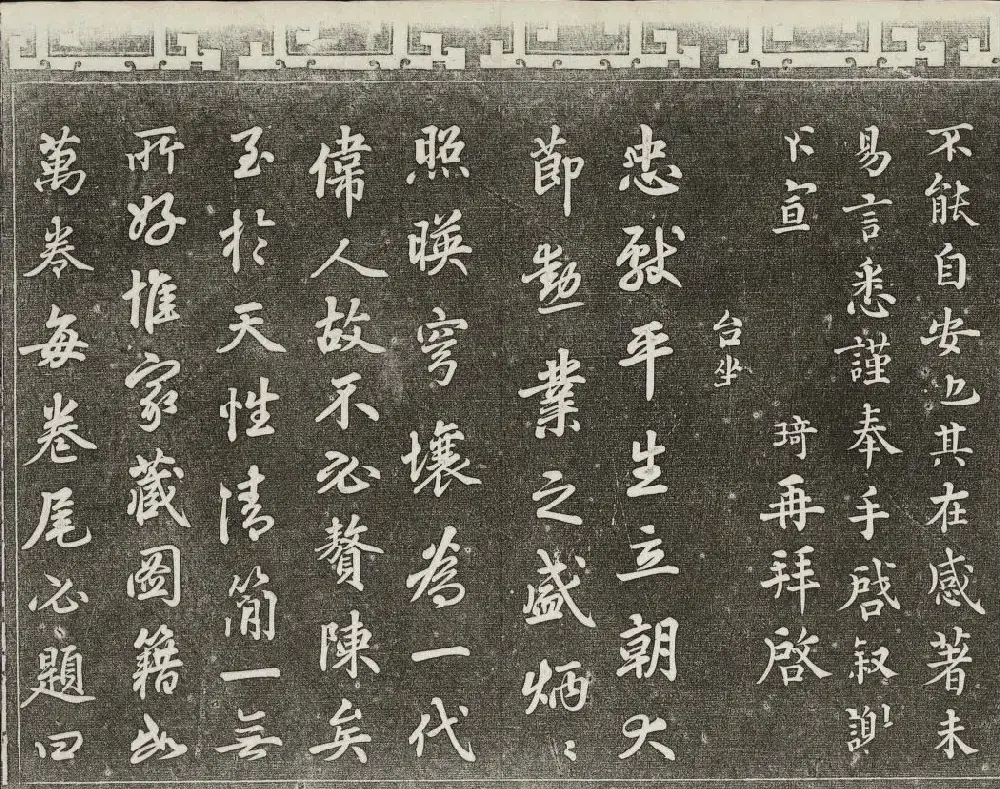 不能自安也其在感著未
易言悉謹奉手啓叙謝
不宣
琦再拜啓
台坐
忠獻平生立朝大
節勳業之盛炳〻
照暎穹壤為一代
偉人故不必贅陳矣
至於天性清簡一無
所好惟家藏圖籍幽
萬卷每卷尾必題曰